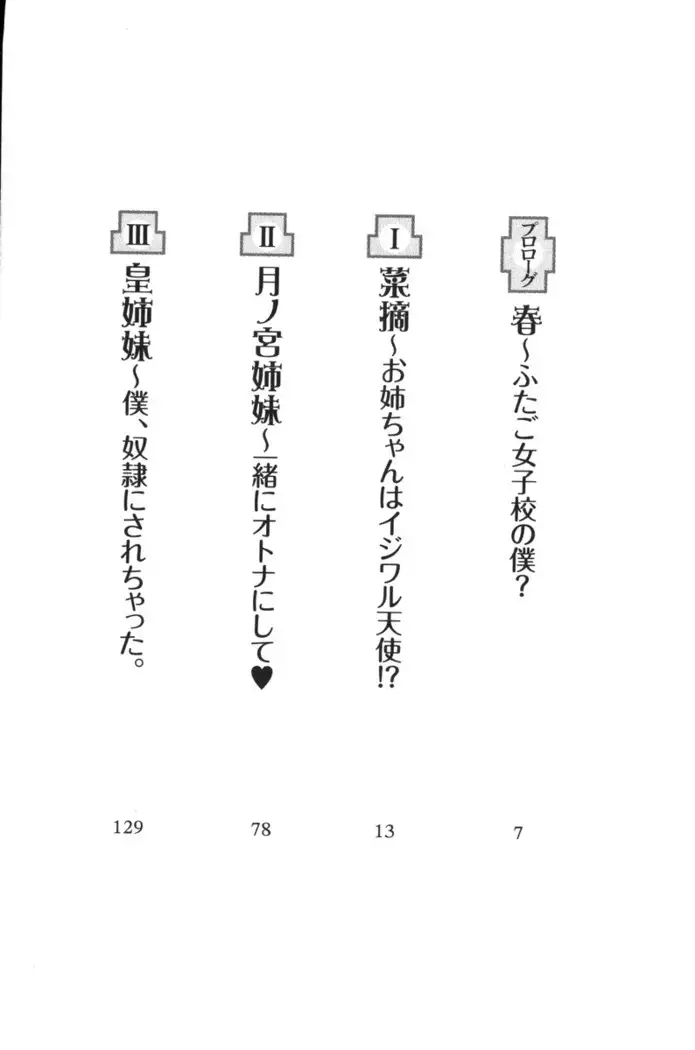 プロローグ
春～ふたご女子校の僕？
7
I
菜摘～お姉ちゃんはイジワル天使!?
13
II
月ノ宮姉妹～一緒にオトナにして♥
78
III
皇姉妹～僕、奴隷にされちゃった。
129